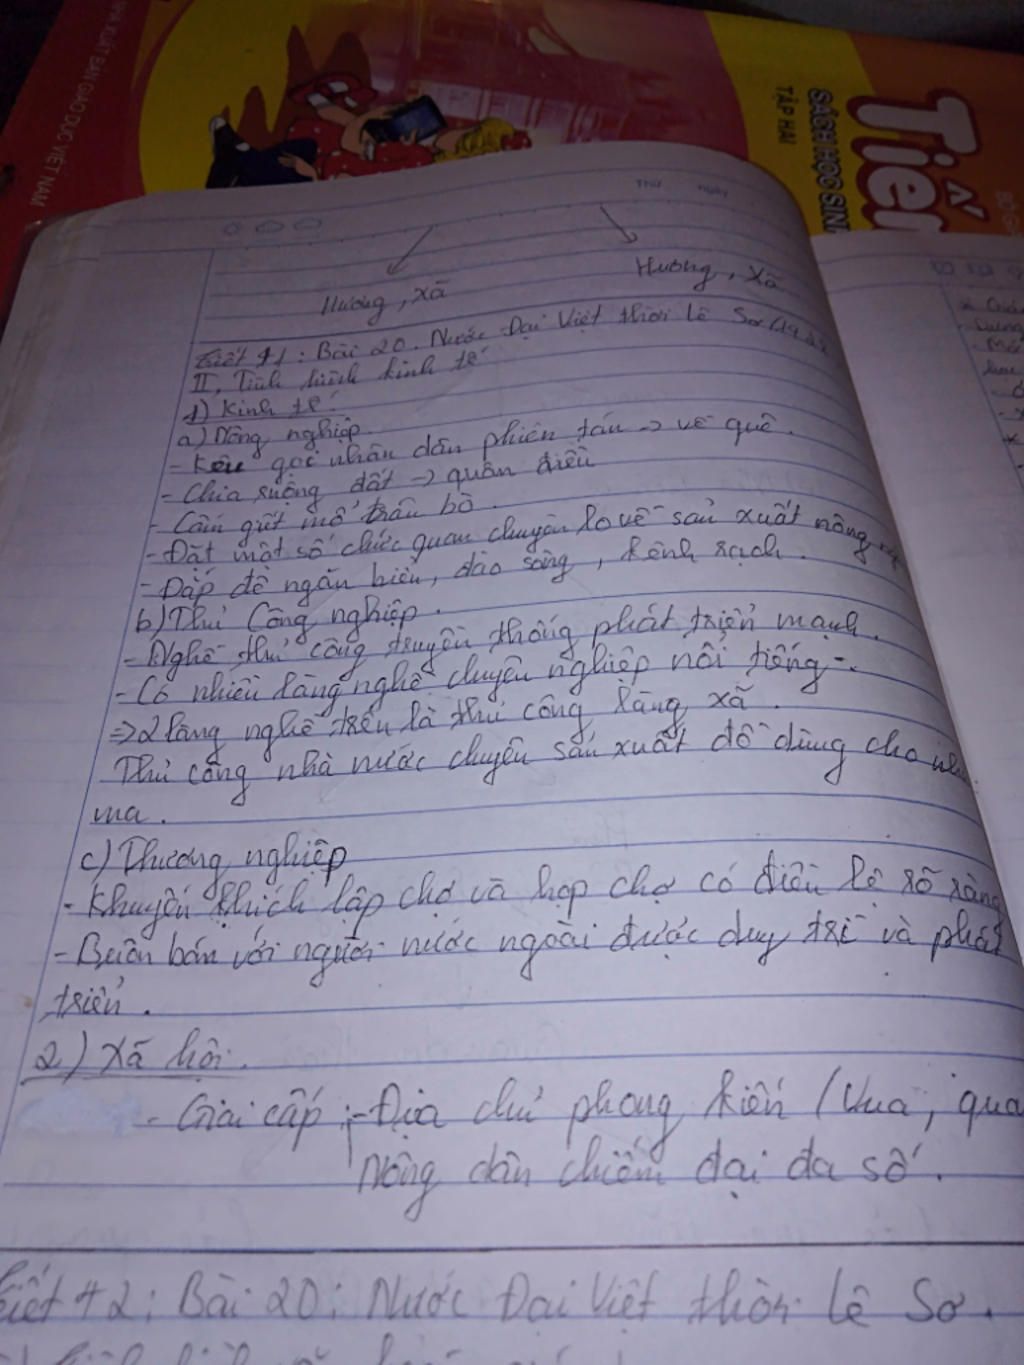 NHÀ XUẤT BẢN GIÁO DỤC VIỆT NAM
SÁCH HỌC SINH
TẬP HAI
Tiến
THỨ NGÀY
Hương, xã Hương, xã
Tiết 41: Bài 20. Nước Đại Việt thời Lê Sơ
II, Tình hình kinh tế
1) Kinh tế.
a) Nông nghiệp.
- Kêu gọi nhân dân phiên tán -> về quê.
- Chia ruộng đất -> quân điền
- Cấm giết mổ trâu bò.
- Đặt một số chức quan chuyên lo về sản xuất nông
- Đắp đê ngăn biển, đào sông, kênh rạch.
b) Thủ Công nghiệp.
- Nghề thủ công truyền thống phát triển mạnh.
- Có nhiều làng nghề chuyên nghiệp nổi tiếng.
=> 2 làng nghề trên là thủ công làng xã.
Thủ công nhà nước chuyên sản xuất đồ dùng cho
ma.
c) Thương nghiệp
- Khuyến khích lập chợ và họp chợ có điều lệ rõ ràng
- Buôn bán với người nước ngoài được duy trì và phát
triển.
2) Xã hội.
- Giai cấp: - Địa chủ phong kiến (Vua, qua
Nông dân chiếm đại đa số.
iết 42: Bài 20: Nước Đại Việt thời Lê Sơ.